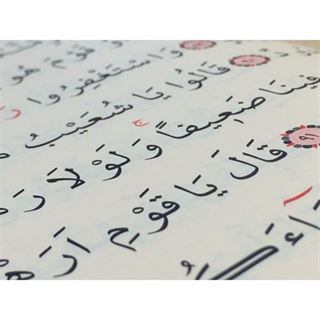 قَوْمَ هُو
٨٩ وَاسْتَغْفِرُوا
٩٠ قَالُوا يَا شُعَيْبُ
فِينَا ضَعِيفاً وَلَوْلَا رَ
٩١ قَالَ يَا قَوْمِ أَرَهْ